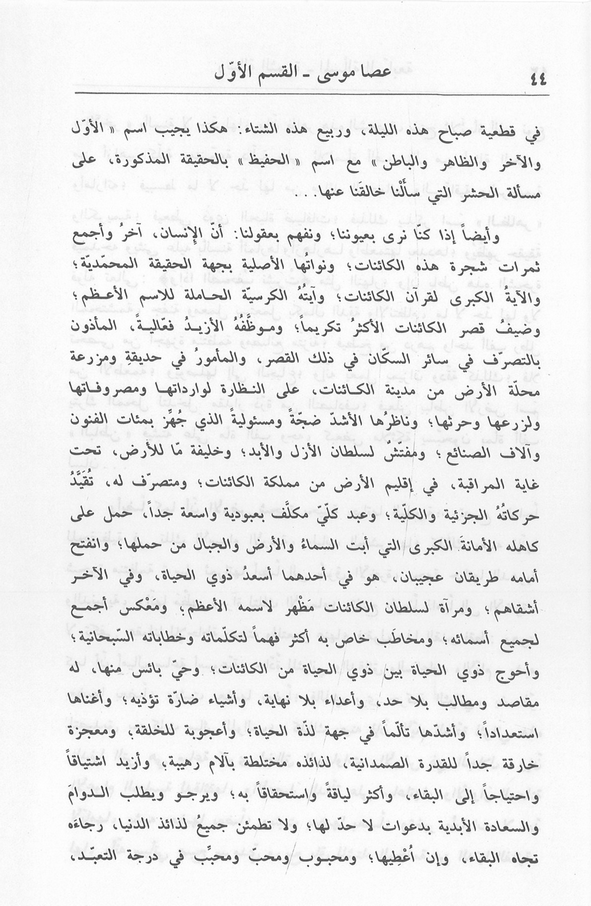 ٤٤
عصا موسى ـ القسم الأوّل
في قطعية صباح هذه الليلة، وربيع هذه الشتاء: هكذا يجيب اسم «الأوّل
والآخر والظاهر والباطن» مع اسم «الحفيظ» بالحقيقة المذكورة، على
مسألة الحشر التي سأَلْنا خالقَنا عنها...
وأيضاً إذا كنّا نرى بعيوننا؛ ونفهم بعقولنا: أنّ الإنسان، آخرُ وأجمع
ثمرات شجرة هذه الكائنات؛ ونواتُها الأصلية بجهة الحقيقة المحمّديّة؛
والآيةُ الكبرى لقرآن الكائنات؛ وآيتُهُ الكرسيّة الحاملة للاسم الأعظم؛
وضيفُ قصر الكائنات الأكثرُ تكريماً؛ وموظَّفُهُ الأزيدُ فعّاليةً، المأذون
بالتصرّف في سائر السكّان في ذلك القصر، والمأمورُ في حديقةِ ومزرعة
محلّة الأرض من مدينة الكائنات، على النظارة لوارداتها ومصروفاتها
ولزرعها وحرثها؛ وناظرُها الأشدّ ضجّةً ومسئوليةً الذي جُهِّز بمئات الفنون
وآلاف الصنائع؛ ومفتّش لسلطان الأزل والأبد؛ وخليفة مّا للأرض، تحت
غاية المراقبة، في إقليم الأرض من مملكة الكائنات؛ ومتصرّف له، تُقَيَّدُ
حركاتُهُ الجزئية والكلّية؛ وعبد كلّيّ مكلَّف بعبودية واسعة جداً، حمل على
كاهله الأمانةَ الكبرى التي أبت السماءُ والأرض والجبال من حملها؛ وانفتح
أمامه طريقان عجيبان، هو في أحدهما أسعدُ ذوي الحياة، وفي الآخر
أشقاهم؛ ومرآة لسلطان الكائنات مَظْهر لاسمه الأعظم؛ ومَعْكس أجمع
لجميع أسمائه؛ ومخاطَب خاص به أكثر فهماً لتكلّماته وخطاباته السّبحانية؛
وأحوج ذوي الحياة بين ذوي الحياة من الكائنات؛ وحيّ بائس منها، له
مقاصد ومطالب بلا حد، وأعداء بلا نهاية، وأشياء ضارّة تؤذيه؛ وأغناها
استعداداً؛ وأشدّها تألّماً في جهة لذّة الحياة؛ وأعجوبة للخلقة، ومعجزة
خارقة جداً للقدرة الصمدانية، لذائذه مختلطة بآلام رهيبة؛ وأزيد اشتياقاً
واحتياجاً إلى البقاء، وأكثر لياقةً واستحقاقاً به؛ ويرجو ويطلب الدوامَ
والسعادة الأبدية بدعوات لا حدّ لها؛ ولا تطمئن جميعُ لذائذ الدنيا، رجاءَه
تجاه البقاء، وإن أُعْطِيها؛ ومحبوب ومحبّ ومحبِّب في درجة التعبّد،